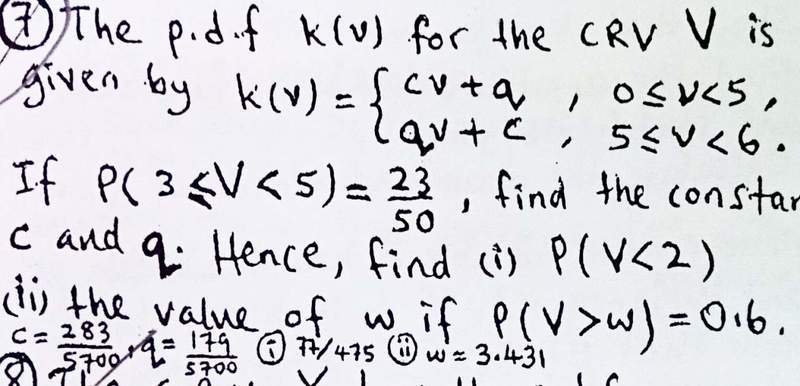 ⑦ The p.d.f k(v) for the CRV V is
given by k(v) = { cv + q , 0 ≤ v < 5 ,
qv + c , 5 ≤ v < 6 .
If P( 3 ≤ V < 5) = 23/50 , find the constan
c and q. Hence, find (i) P(V<2)
(ii) the value of w if P(V>w) = 0.6.
c = 283/5700 , q = 179/5700 (i) 77/475 (ii) w ≈ 3.431